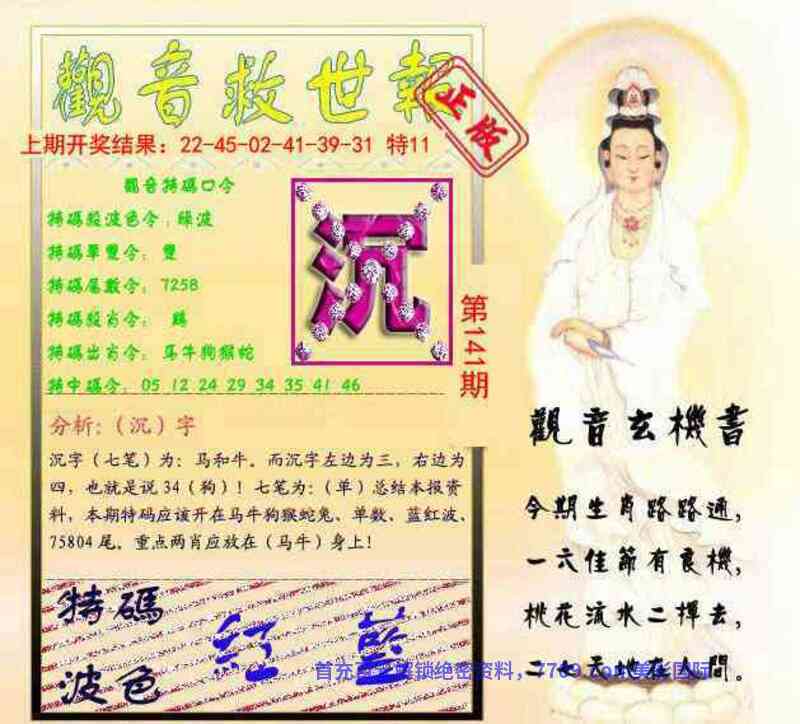 觀音救世報
正版
上期开奖结果：22-45-02-41-39-31 特11
觀音特碼口令
特碼殺波色令：綠波
特碼單雙令：雙
特碼尾數令：7258
特碼殺肖令： 鷄
特碼出肖令：马牛狗猴蛇
特中碼令：05 12 24 29 34 35 41 46
沉
第141期
分析:（沉）字
沉字（七笔）为：马和牛。而沉字左边为三，右边为
四，也就是说34（狗）！七笔为:（单）总结本报资
料，本期特码应该开在马牛狗猴蛇兔、单数、蓝红波、
75804尾。重点两肖应放在（马牛）身上！
特碼
波色
紅 藍
觀音玄機書
今期生肖路路通，
一六佳節有良機，
桃花流水二揮去，
天地在人間。